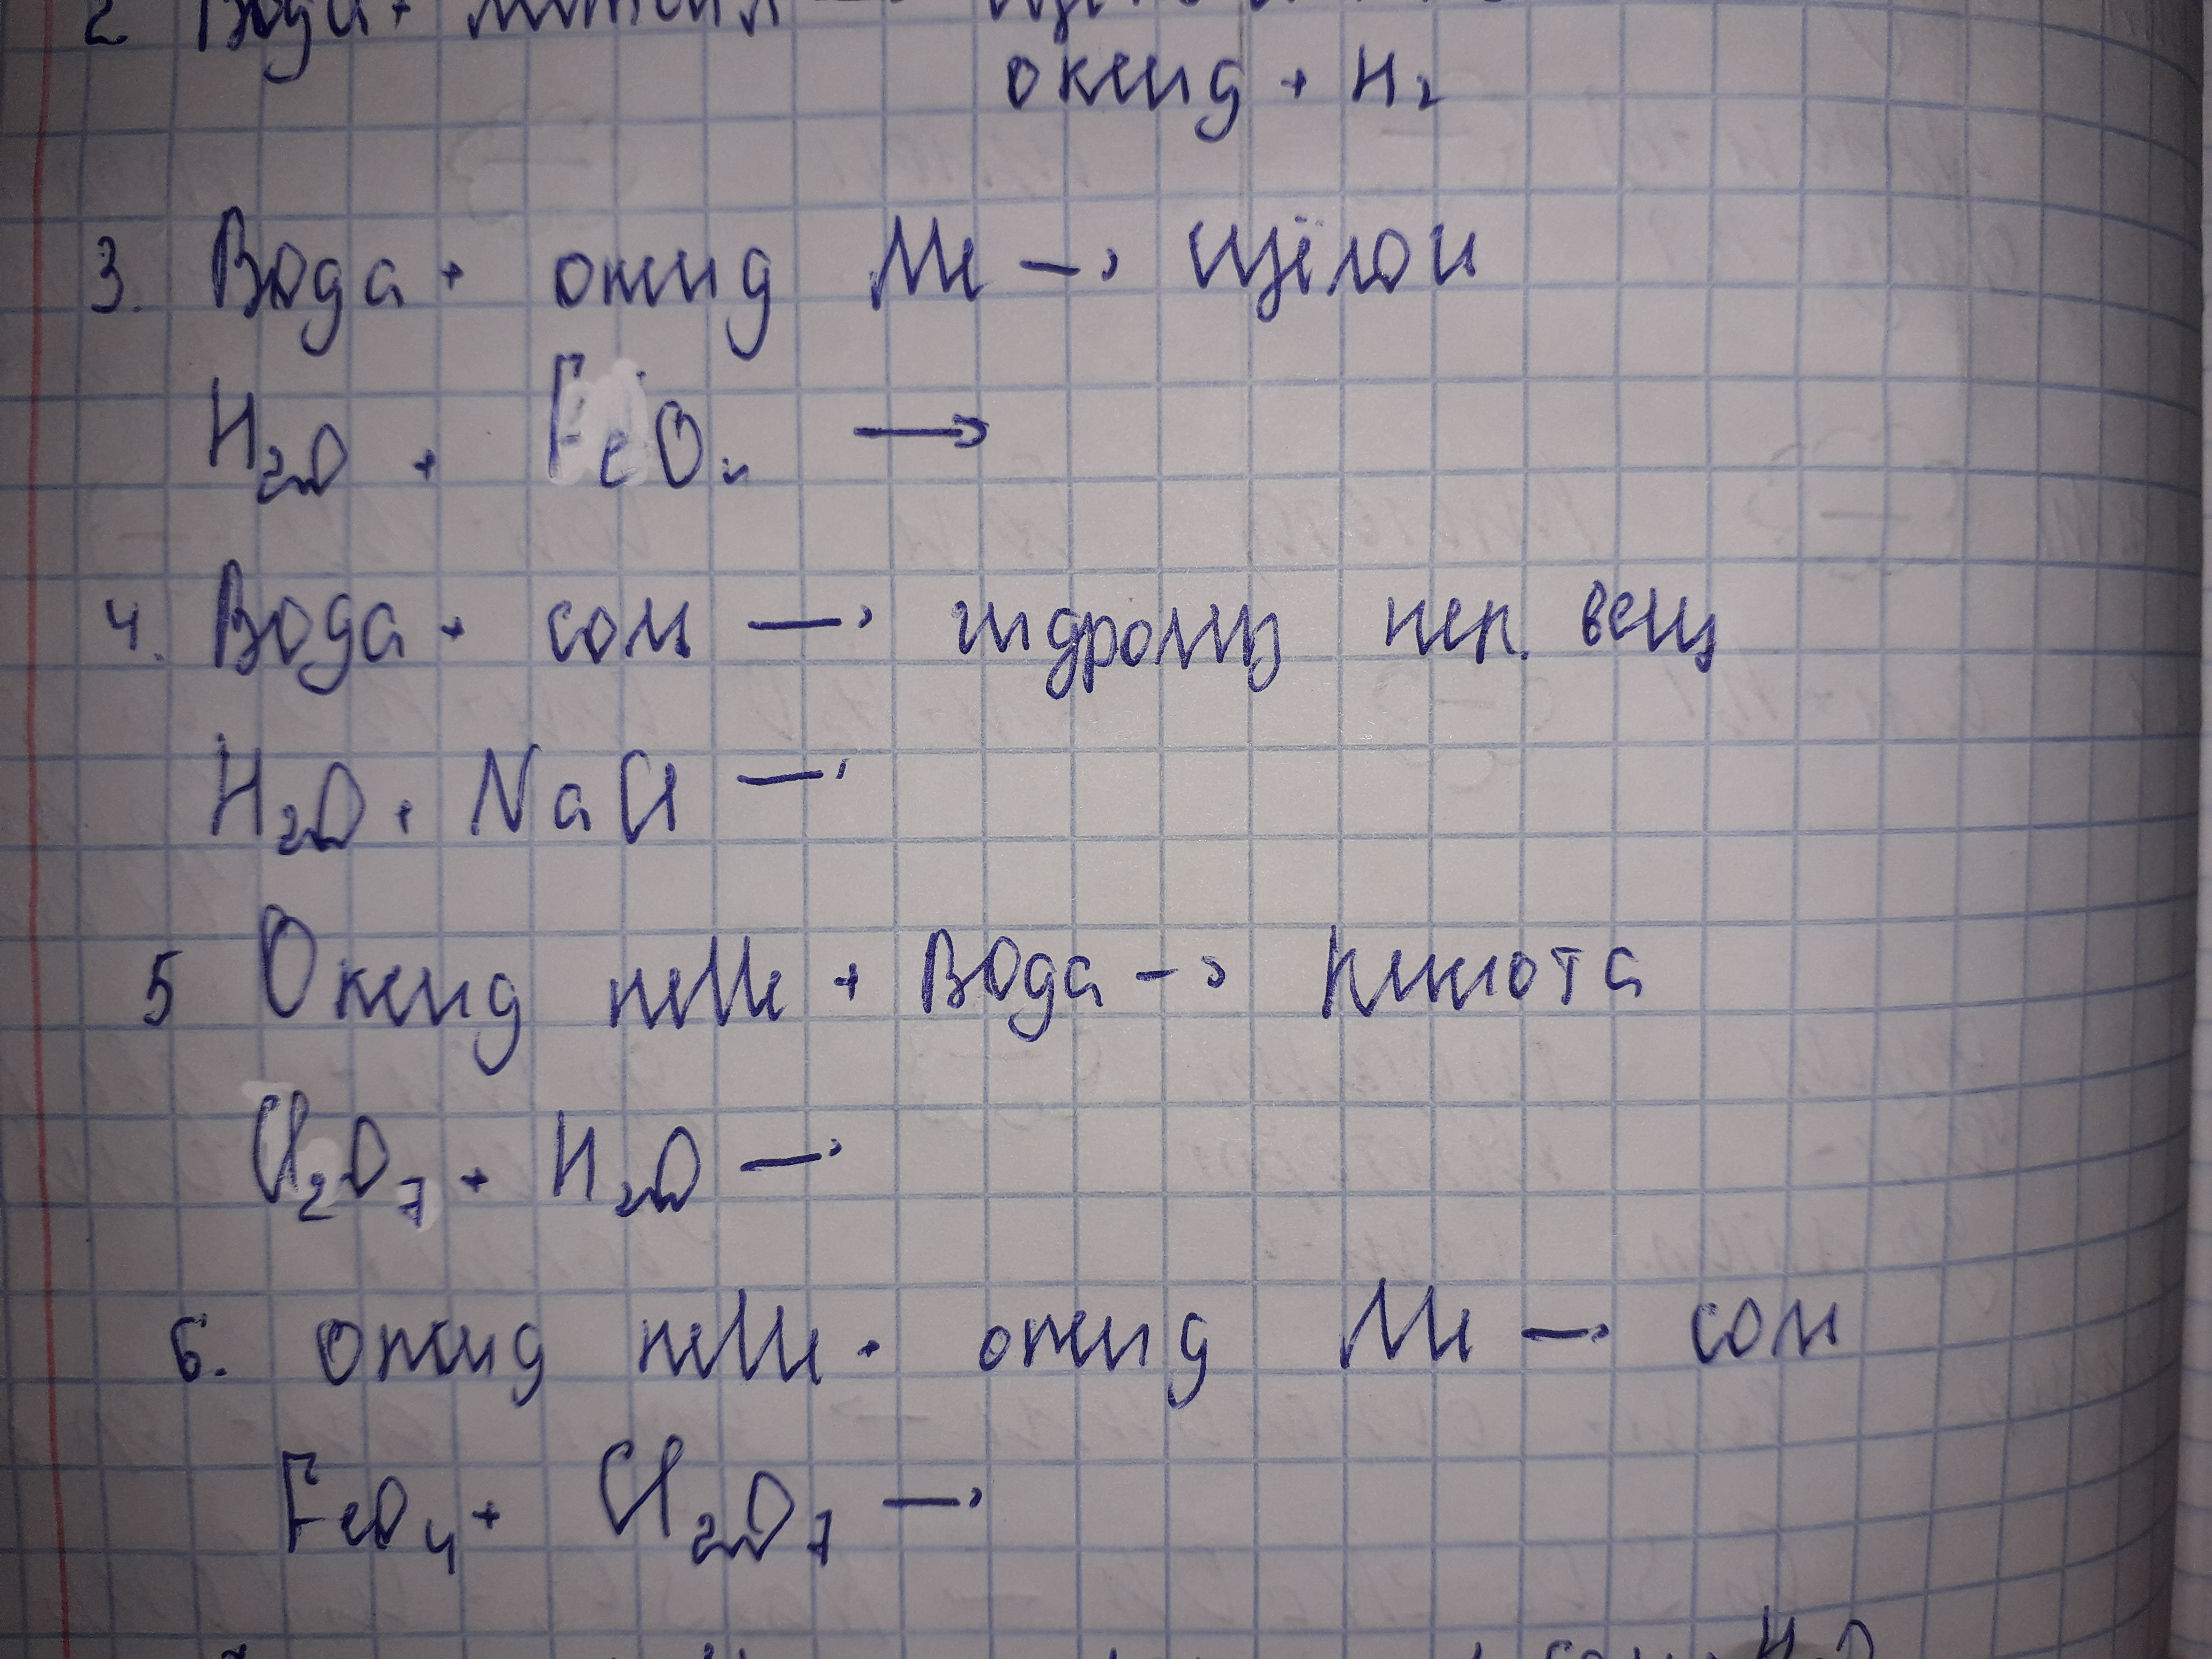 2 Вода +
оксид + H2
3. Вода + оксид Me → щёлочи
H2O + FeO4 →
4. Вода + соль → гидролиз нер. вещ
H2O + NaCl →
5 Оксид неMe + Вода → кислота
Cl2O7 + H2O →
6. оксид неMe + оксид Me → соли
FeO4 + Cl2O7 →